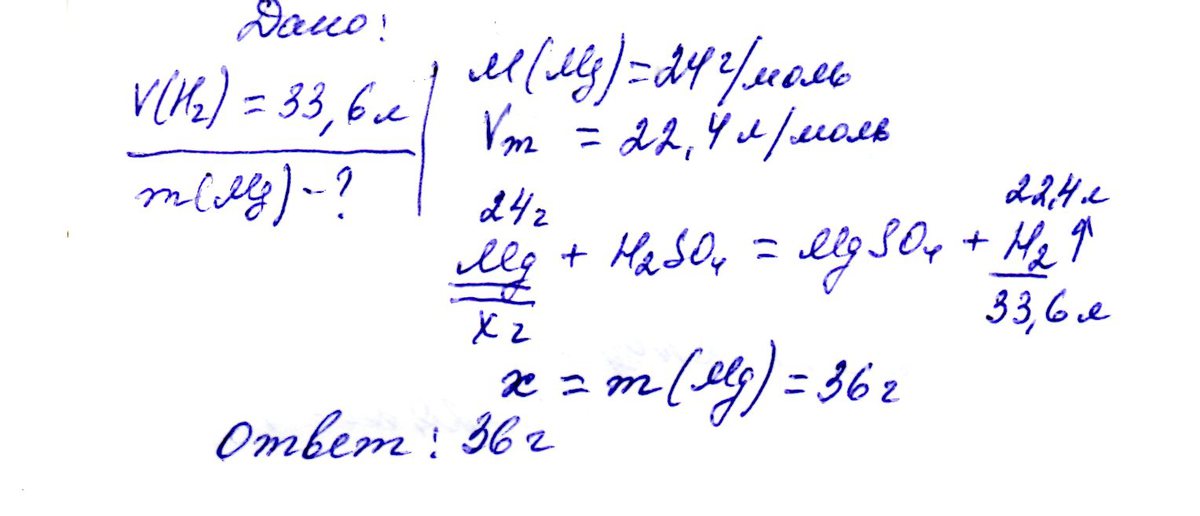 Дано:
V(H₂) = 33,6 л
m(Mg) - ?
M(Mg) = 24 г/моль
Vm = 22,4 л/моль
24 г 22,4 л
Mg + H₂SO₄ = MgSO₄ + H₂↑
x г 33,6 л
x = m(Mg) = 36 г
Ответ: 36 г